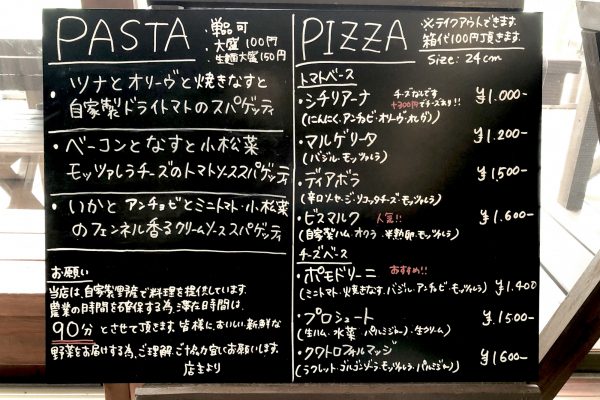 PASTA
・単品可
・大盛100円
生麺大盛150円
・ツナとオリーヴと焼きなすと
自家製ドライトマトのスパゲッティ
・ベーコンとなすと小松菜
モッツァレラチーズのトマトソーススパゲッティ
・いかとアンチョビとミニトマト・小松菜
のフェンネル香るクリームソーススパゲッティ
お願い
当店は、自家製野菜で料理を提供しています。
農業の時間を確保する為、滞在日時間は、
90分とさせて頂きます。皆様に、おいしい新鮮な
野菜をお届けする為、ご理解、ご協力宜しくお願いします。
店主より
PIZZA
※テイクアウトできます。
箱代100円頂きます。
Size: 24cm
トマトベース
・シチリアーナ チーズなしです ¥1.000-
+300円でチーズあり!!
(にんにく・アンチョビ・オリーヴ・オレガノ)
・マルゲリータ ¥1.200-
(バジル・モッツァレラ)
・ディアボラ ¥1,500-
(辛口ソーセージ・リコッタチーズ・モッツァレラ)
・ビスマルク 人気!! ¥1.600-
(自家製ハム・オクラ・半熟卵・モッツァレラ)
チーズベース
・ポモドリーニ おすすめ!!
(ミニトマト・焼きなす・バジル・アンチョビ・モッツァレラ) ¥1.400
・プロシュート ¥1500-
(生ハム・水菜・パルミジャーノ・生クリーム)
・クワトロフォルマッジ ¥1600-
(ラクレット・ゴルゴンゾーラ・モッツァレラ・パルミジャーノ)